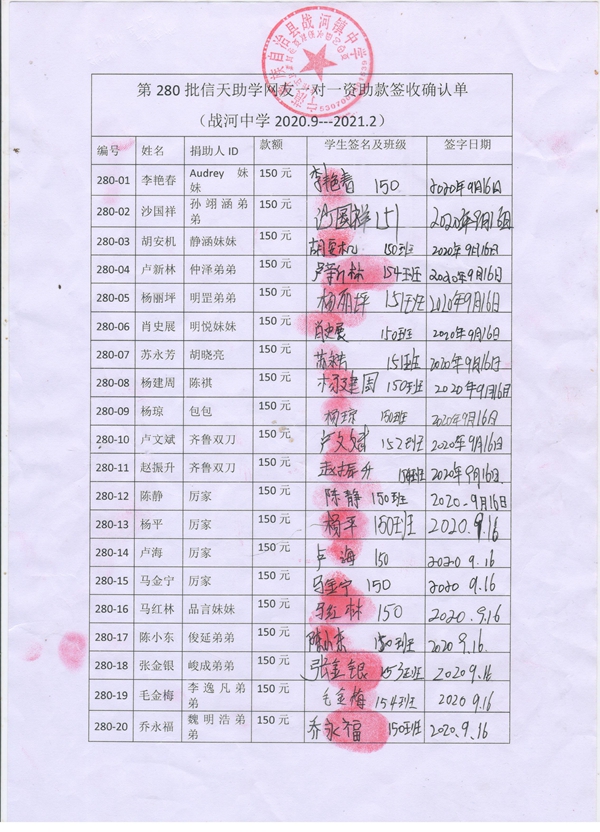 自治县战河镇中学
第 280 批信天助学网友一对一资助款签收确认单
（战河中学 2020.9---2021.2）
编号 姓名 捐助人 ID 款额 学生签名及班级 签字日期
280-01 李艳春 Audrey 妹妹 150 元 李艳春 150 2020年9月16日
280-02 沙国祥 孙翊涵弟弟 150 元 沙国祥 151 2020年9月16日
280-03 胡安机 静涵妹妹 150 元 胡安机 150班 2020年9月16日
280-04 卢新林 仲泽弟弟 150 元 卢新林 154班 2020年9月16日
280-05 杨丽坪 明罡弟弟 150 元 杨丽坪 151班 2020年9月16日
280-06 肖史展 明悦妹妹 150 元 肖史展 150班 2020年9月16日
280-07 苏永芳 胡晓亮 150 元 151班 2020年9月16日
280-08 杨建周 陈祺 150 元 杨建周 150班 2020年9月16日
280-09 杨琼 包包 150 元 杨琼 150班 2020年9月16日
280-10 卢文斌 齐鲁双刀 150 元 卢文斌 152班 2020年9月16日
280-11 赵振升 齐鲁双刀 150 元 赵振升 2020年9月16日
280-12 陈静 厉家 150 元 陈静 150班 2020.9月16日
280-13 杨平 厉家 150 元 杨平 150班 2020.9.16
280-14 卢海 厉家 150 元 卢海 150 2020 9.16
280-15 马金宁 厉家 150 元 马金宁 150 2020 9.16
280-16 马红林 品言妹妹 150 元 马红林 150 2020.9.16
280-17 陈小东 俊延弟弟 150 元 陈小东 150班 2020 9.16
280-18 张金银 峻成弟弟 150 元 张金银 153班 2020 9.16
280-19 毛金梅 李逸凡弟弟 150 元 毛金梅 154班 2020 9.16
280-20 乔永福 魏明浩弟弟 150 元 乔永福 150班 2020.9.16